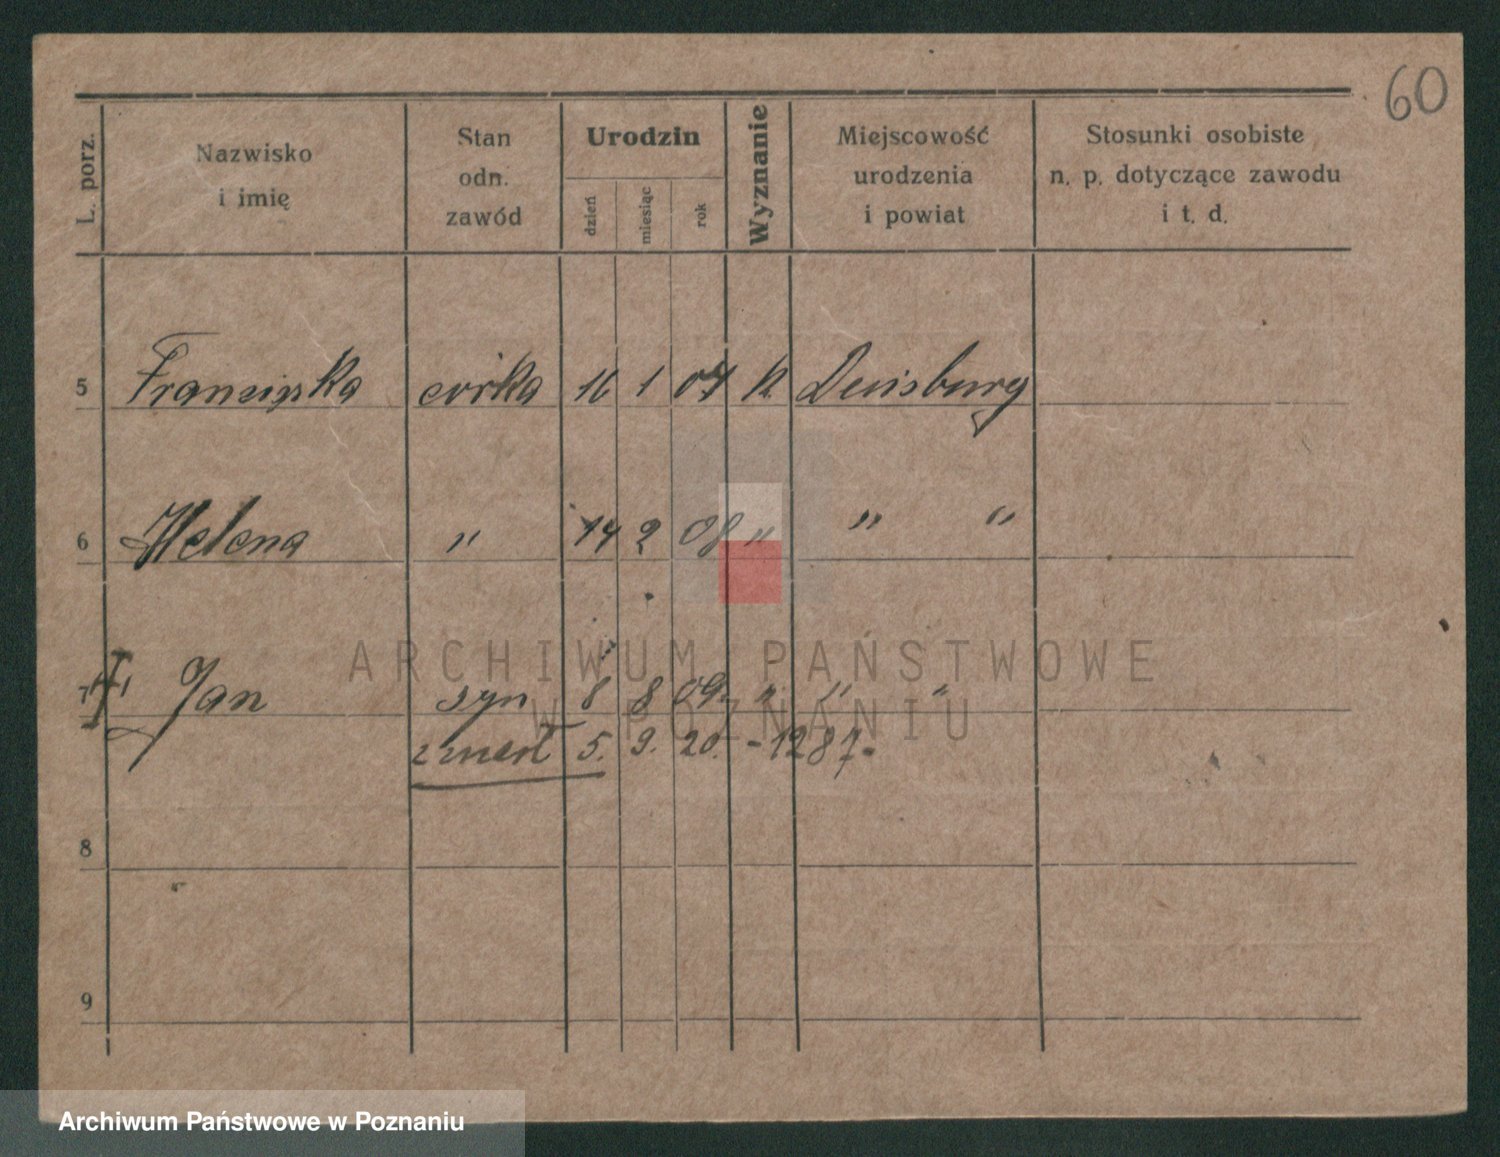 60
L. porz.
Nazwisko
i imię
Stan
odn.
zawód
Urodzin
dzień
miesiąc
rok
Wyznanie
Miejscowość
urodzenia
i powiat
Stosunki osobiste
n. p. dotyczące zawodu
i t. d.
5 Franziska córka 16 1 07 k Duisburg
6 Helena " 14 2 08 " " "
7 Jan syn 8 8 09 " " "
zmarł 5. 9. 20. -1287-
8
9
ARCHIWUM PAŃSTWOWE
W POZNANIU
Archiwum Państwowe w Poznaniu